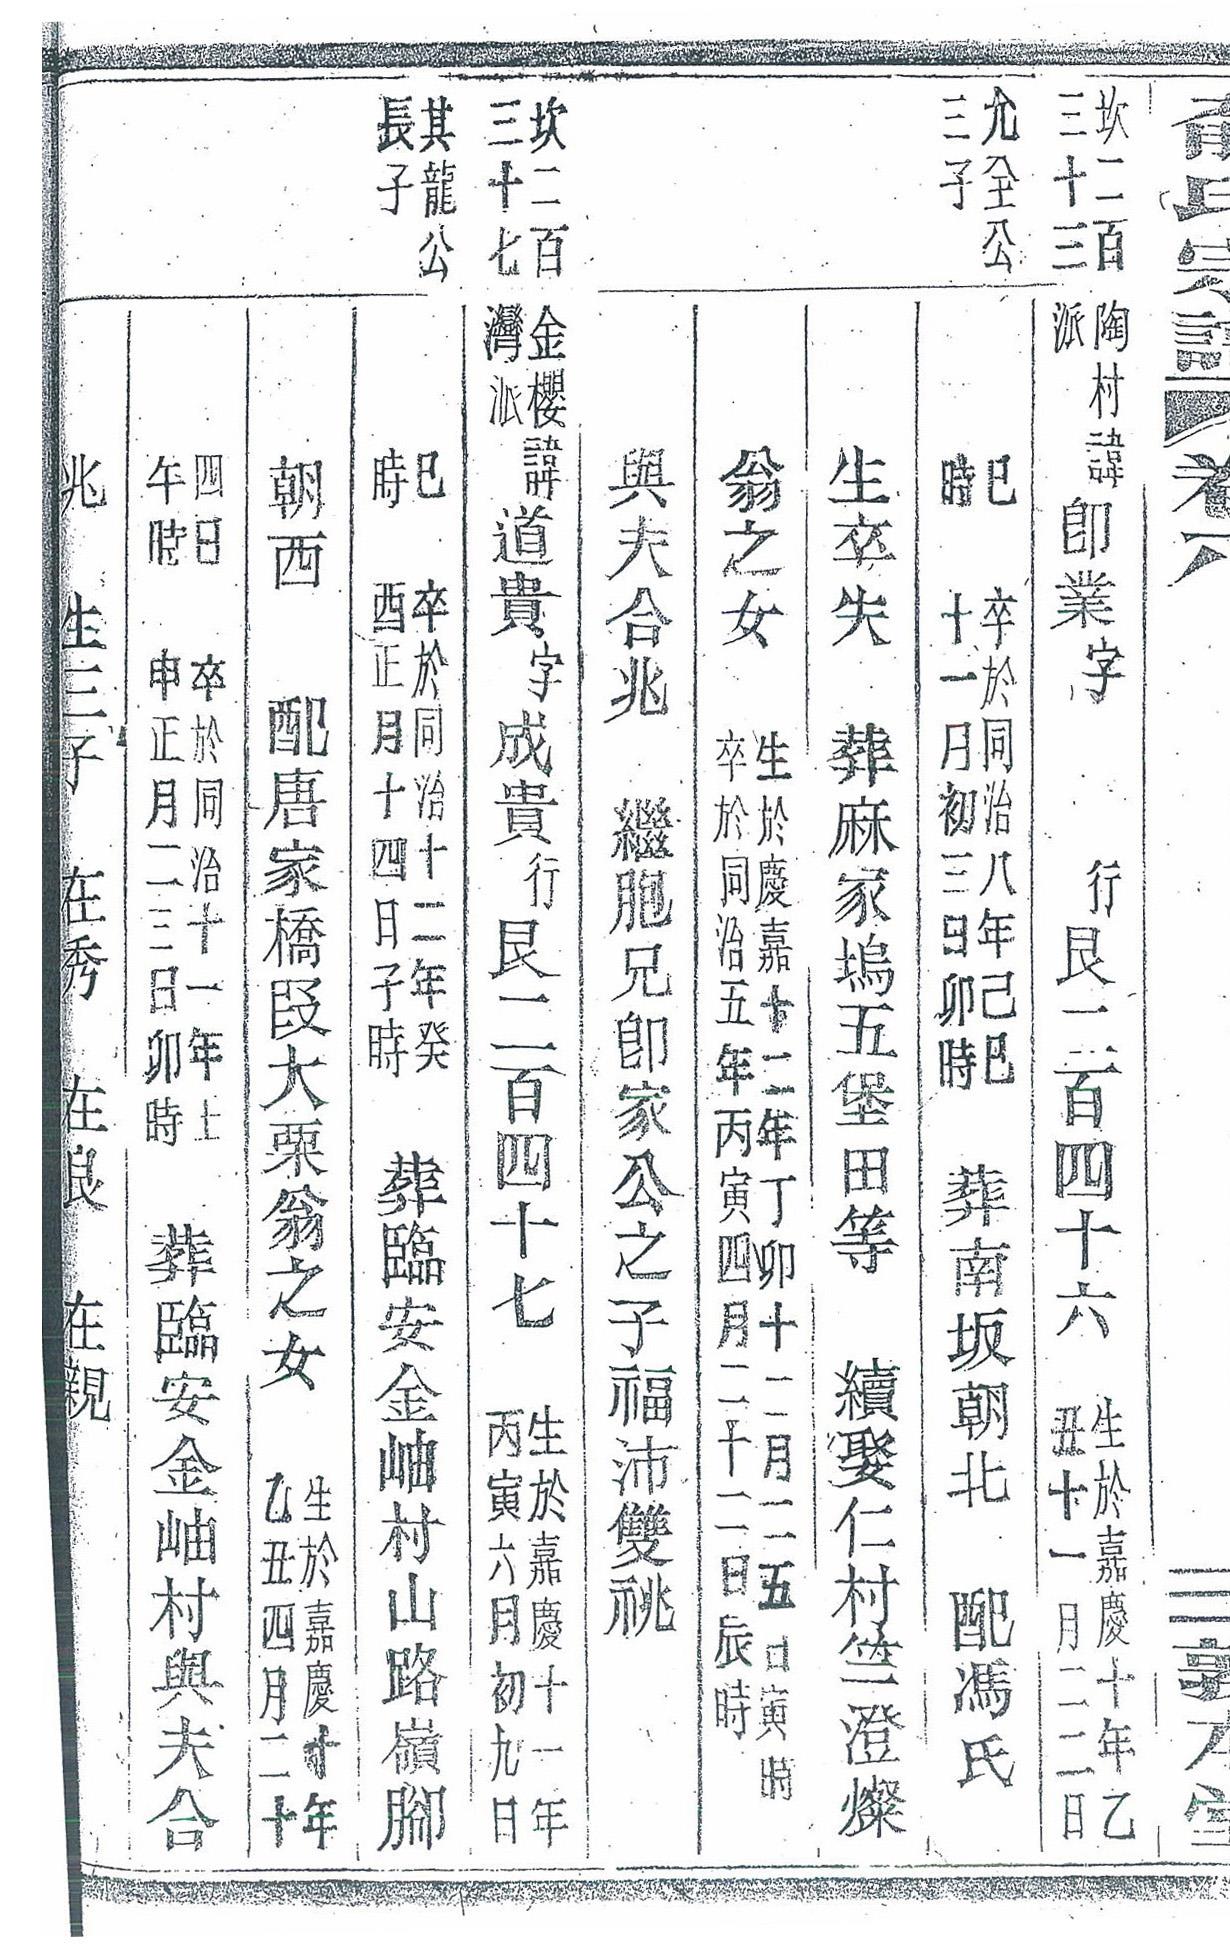 宗譜 卷八
敦本堂
坎二百
三十三
允全公
三子
陶村
派
諱即業字 行艮二百四十六 生於嘉慶十年乙
丑十一月二二日
巳
時 卒於同治八年己巳
十一月初三日卯時 葬南坂朝北 配馮氏
生卒失 葬麻家塢五堡田等 續娶仁村竺澄燦
翁之女 生於慶嘉十二年丁卯十二月二五日寅時
卒於同治五年丙寅四月二十二日辰時
與夫合兆 繼胞兄即家公之子福沛雙祧
坎二百
三十七
其龍公
長子
金櫻
灣派
諱道貴字成貴行艮二百四十七 生於嘉慶十一年
丙寅六月初九日
巳
時 卒於同治十二年癸
酉正月十四日子時 葬臨安金岫村山路嶺腳
朝西 配唐家橋段大栗翁之女 生於嘉慶十年
乙丑四月二十
四日
午時 卒於同治十一年土
申正月二三日卯時 葬臨安金岫村與夫合
兆 生三子 在秀 在良 在親